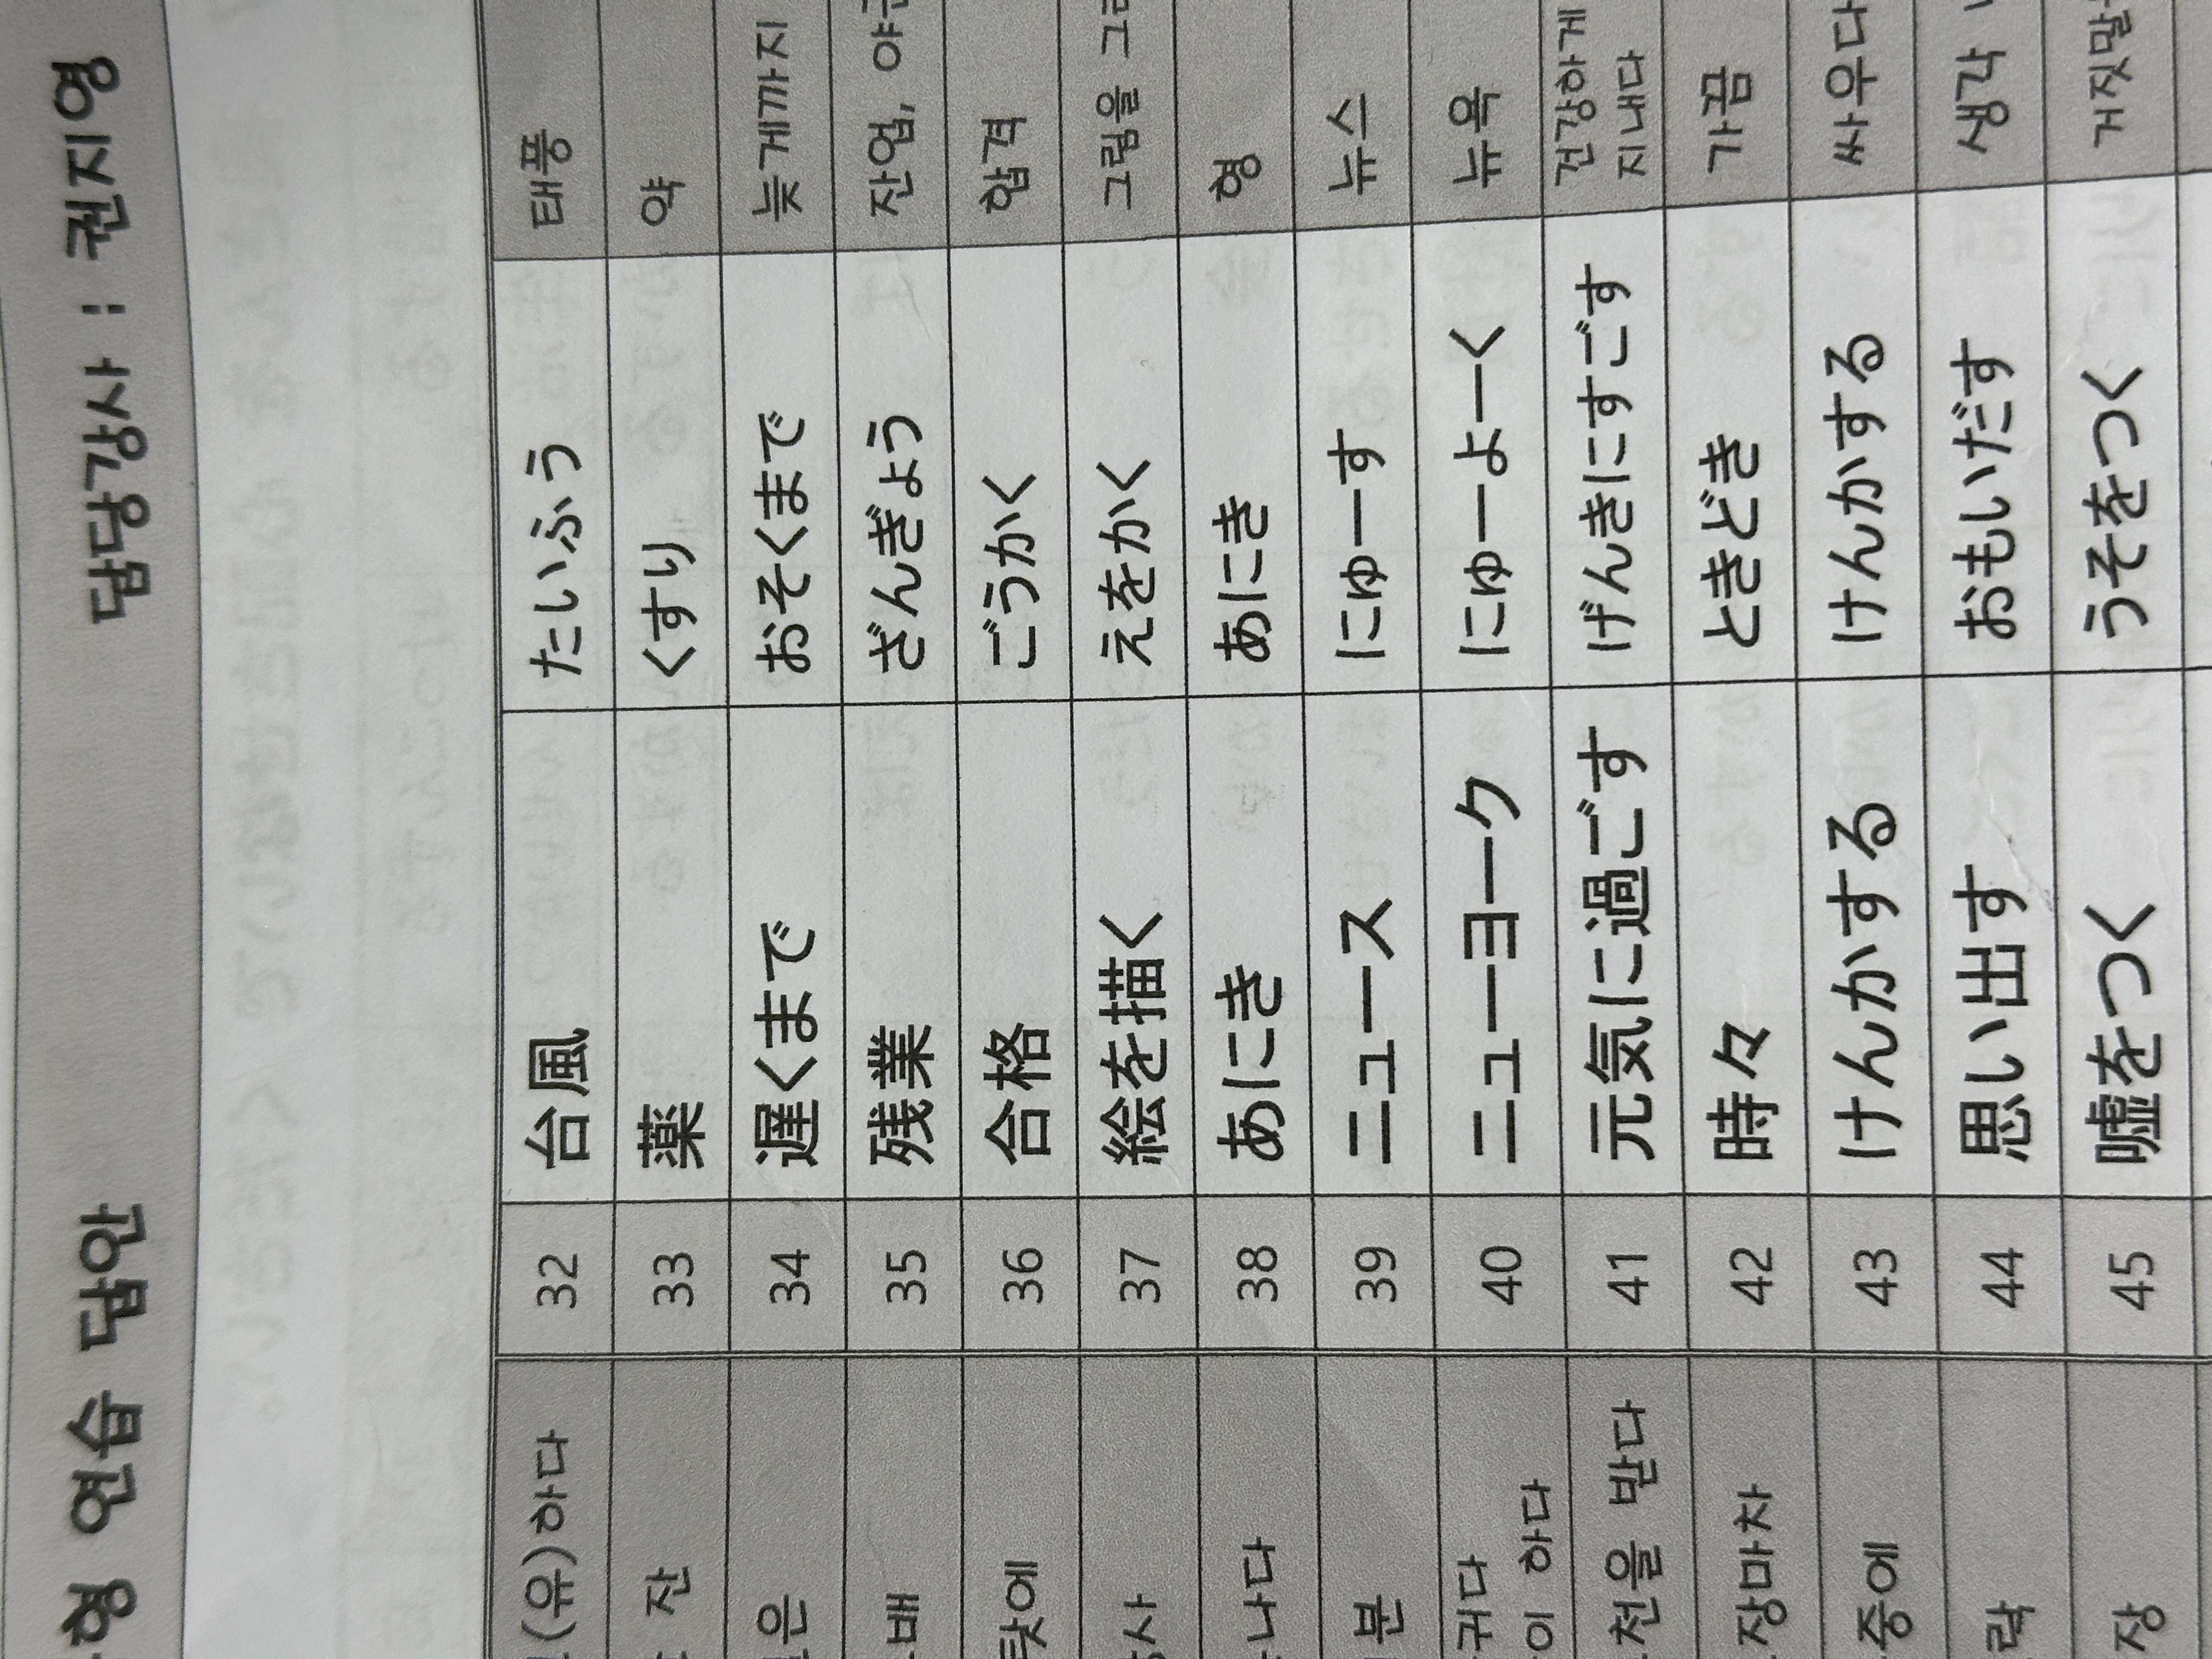 연습 답안 담당강사 : 권지영
(유)하다 32 台風 たいふう 태풍
잔 33 薬 くすり 약
34 遅くまで おそくまで 늦게까지
35 残業 ざんぎょう 잔업,
36 合格 ごうかく 합격
37 絵を描く えをかく 그림을
38 あにき あにき 형
39 ニュース にゅーす 뉴스
40 ニューヨーク にゅーよーく 뉴욕
하다
받다 41 元気に過ごす げんきにすごす 건강하게
지내다
42 時々 ときどき 가끔
43 けんかする けんかする 싸우다
44 思い出す おもいだす 생각
45 嘘をつく うそをつく